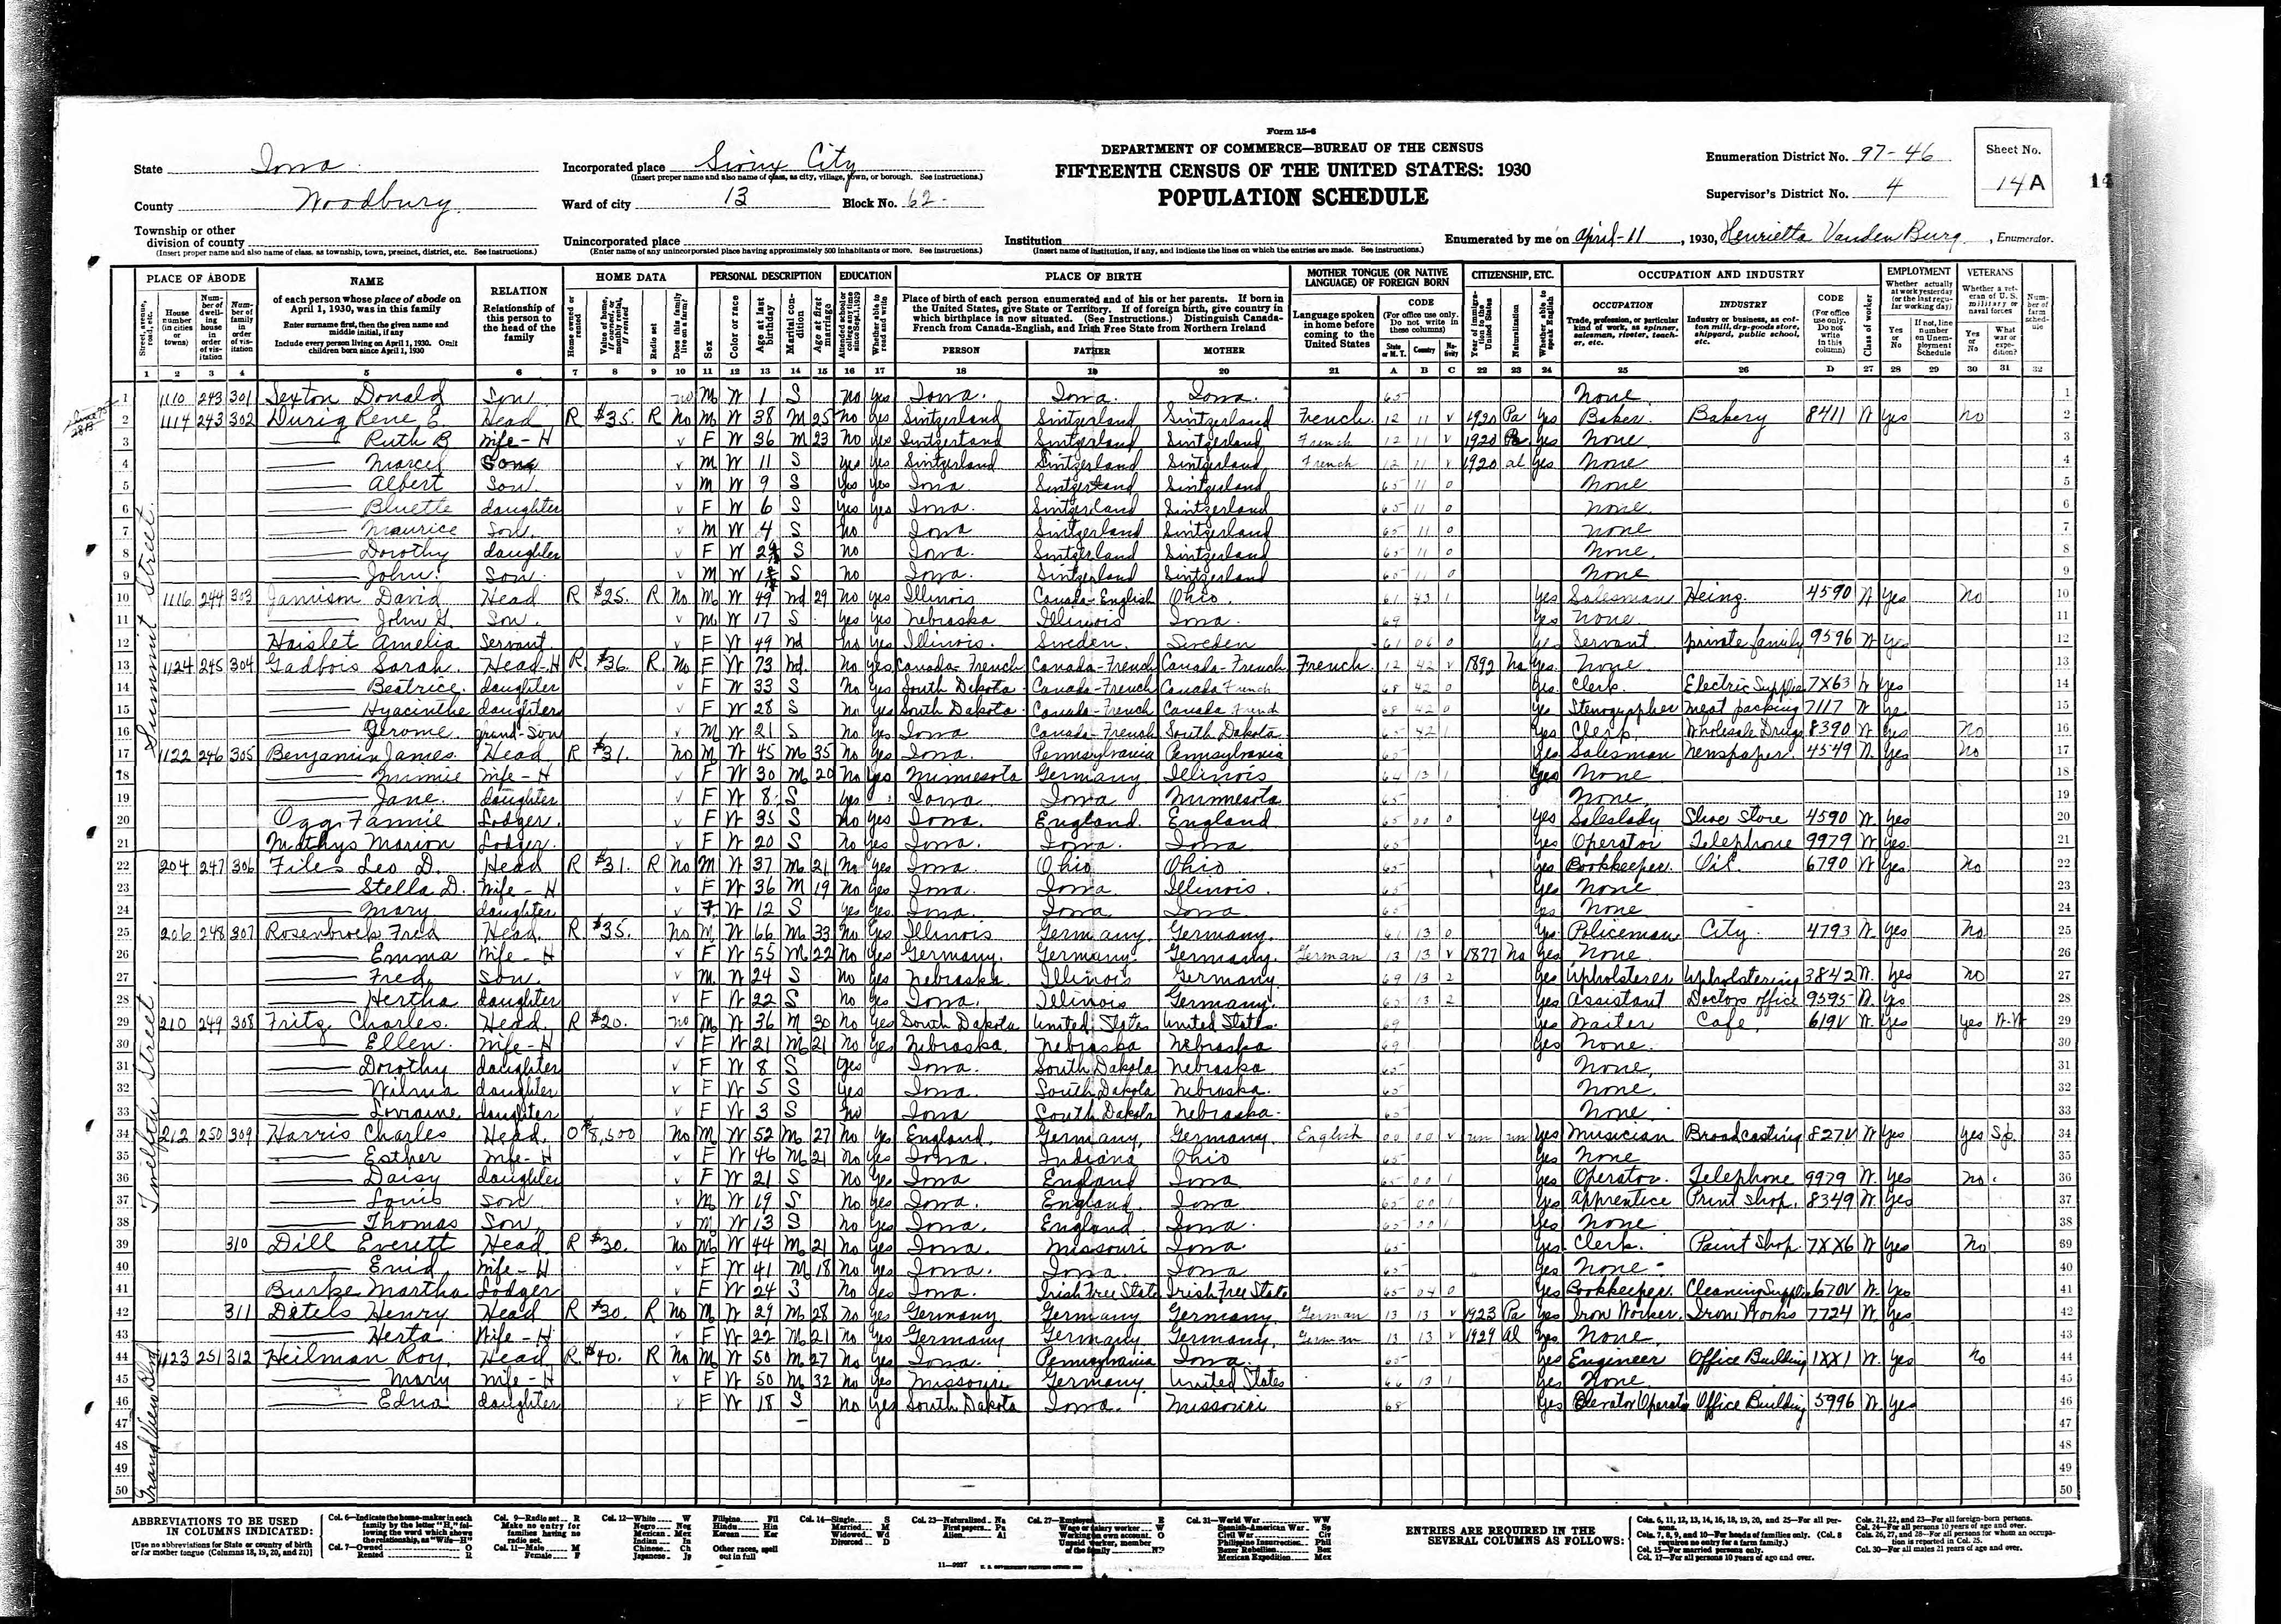 Form 15-6
DEPARTMENT OF COMMERCE—BUREAU OF THE CENSUS
FIFTEENTH CENSUS OF THE UNITED STATES: 1930
POPULATION SCHEDULE
State Iowa
County Woodbury
Township or other division of county
(Insert proper name and also name of class, as township, town, precinct, district, etc. See instructions.)
Incorporated place Sioux City
(Insert proper name and also name of class, as city, village, town, or borough. See instructions.)
Ward of city 13 Block No. 62
Unincorporated place
(Enter name of any unincorporated place having approximately 500 inhabitants or more. See instructions.)
Institution
(Insert name of institution, if any, and indicate the lines on which the entries are made. See instructions.)
Enumeration District No. 97-46
Supervisor's District No. 4
Sheet No. 14 A
Enumerated by me on April-11, 1930, Henrietta Vanden Burg, Enumerator.
PLACE OF ABODE NAME RELATION HOME DATA PERSONAL DESCRIPTION EDUCATION PLACE OF BIRTH MOTHER TONGUE (OR NATIVE LANGUAGE) OF FOREIGN BORN CITIZENSHIP, ETC. OCCUPATION AND INDUSTRY EMPLOYMENT VETERANS
1 2 3 4 5 6 7 8 9 10 11 12 13 14 15 16 17 18 19 20 21 A B C 22 23 24 25 26 D 27 28 29 30 31 32
Summit Street
1 1110 243 301 Sexton Donald Son no M W 1 S no yes Iowa. Iowa. Iowa. 65 None
2 1114 243 302 Durig Rene E Head R $35. R No M W 38 M 25 no yes Sintzerland Sintzerland Sintzerland French 12 11 V 1920 Pa yes Baker Bakery 8411 W yes no
3 Ruth B Wife-H F W 36 M 23 No yes Sintzerland Sintzerland Sintzerland French 12 11 V 1920 Pa yes None
4 Marcel Son M W 11 S yes yes Sintzerland Sintzerland Sintzerland French 12 11 V 1920 al yes None
5 Albert Son M W 9 S yes yes Iowa Sintzerland Sintzerland 65 11 0 None
6 Bluette daughter F W 6 S yes yes Iowa. Sintzerland Sintzerland 65 11 0 None
7 Maurice Son M W 4 S no Iowa Sintzerland Sintzerland 65 11 0 None
8 Dorothy daughter F W S no Iowa. Sintzerland Sintzerland 65 11 0 None
9 John Son M W S no Iowa. Sintzerland Sintzerland 65 11 0 None
10 1116 244 303 Jamison David Head R $25. R No M W 49 29 no yes Illinois Canada-English Ohio. 61 43 1 yes Salesman Heinz 4590 W yes no
11 John H. Son M W 17 S yes yes Nebraska Illinois Iowa 69 yes None
12 Haislet Amelia Servant F W 49 no yes Illinois. Sweden. Sweden 61 06 0 yes Servant private family 9596 W yes
13 1124 245 304 Gadbois Sarah Head-H R $36. R No F W 73 No yes Canada-French Canada-French Canada-French French 12 42 V 1892 Na yes None
14 Beatrice daughter F W 33 S No yes South Dakota Canada-French Canada French 68 42 0 yes Clerk Electric Supplies 7X63 W yes
15 Hyacinthe daughter F W 28 S No yes South Dakota Canada-French Canada French 68 42 0 yes Stenographer Meat packing 7117 W yes
16 Jerome grand-Son M W 21 S No yes Iowa Canada-French South Dakota 65 42 1 yes Clerk Wholesale Drugs 8390 W yes no
17 1122 246 305 Benjamin James Head R $31. No M W 45 M 35 no yes Iowa. Pennsylvania Pennsylvania 65 yes Salesman newspaper 4549 W yes no
18 Minnie Wife-H F W 30 M 20 No yes Minnesota Germany Illinois 64 13 1 yes None
19 Jane daughter F W 8 S yes Iowa Iowa Minnesota 65 None
20 Ogg Fannie Lodger F W 35 S No yes Iowa. England. England 65 00 0 yes Saleslady Shoe Store 4590 W yes
21 Mathys Marion Lodger F W 20 S No yes Iowa. Iowa. Iowa 65 yes Operator Telephone 9979 W yes
Twelfth Street
22 204 247 306 Files Leo D. Head R $31. R No M W 37 M 21 No yes Iowa. Ohio Ohio 65 yes Bookkeeper Oil 6790 W yes no
23 Stella D. Wife-H F W 36 M 19 No yes Iowa. Iowa Illinois 65 yes None
24 Mary daughter F W 12 S yes yes Iowa Iowa Iowa 65 yes None
25 206 248 307 Rosenbrock Fred Head R $35. No M W 66 M 33 No yes Illinois Germany. Germany. 61 13 0 yes Policeman City 4793 W yes no
26 Emma Wife-H F W 55 M 22 No yes Germany. Germany. Germany. German 13 13 V 1877 Na yes None
27 Fred Son M W 24 S no yes Nebraska Illinois Germany 69 13 2 yes Upholsterer Upholstering 3842 W yes no
28 Hertha daughter F W 22 S No yes Iowa. Illinois Germany. 65 13 2 yes Assistant Doctors office 9595 W yes
29 210 249 308 Fritz Charles Head R $20. no M W 36 M 30 no yes South Dakota United States United States 69 yes Waiter Cafe 619V W yes yes W.W
30 Ellen Wife-H F W 21 M 21 no yes Nebraska Nebraska Nebraska 69 yes None
31 Dorothy daughter F W 8 S yes Iowa. South Dakota Nebraska 65 None
32 Wilma daughter F W 5 S yes Iowa South Dakota Nebraska. 65 None
33 Lorraine daughter F W 3 S no Iowa South Dakota Nebraska 65 None
34 212 250 309 Harris Charles Head O $8,500 No M W 52 M 27 no yes England. Germany, Germany. English 00 00 V un un yes Musician Broadcasting 827V W yes yes Sp.
35 Esther Wife-H F W 46 M 21 no yes Iowa. Indiana Ohio 65 yes None
36 Daisy daughter F W 21 S No yes Iowa England Iowa 65 00 1 yes Operator Telephone 9979 W yes no.
37 Louis Son M W 19 S No yes Iowa. England. Iowa 65 00 1 yes Apprentice Print Shop. 8349 W yes
38 Thomas Son M W 13 S No yes Iowa. England Iowa 65 00 1 yes None
39 310 Dill Everett Head R $30. no M W 44 M 21 no yes Iowa. Missouri Iowa 65 yes Clerk Paint Shop. 7XX6 W yes no
40 Enid Wife-H F W 41 M 18 no yes Iowa. Iowa. Iowa 65 yes None
41 Burke Martha Lodger F W 24 S No yes Iowa. Irish Free State Irish Free State 65 04 0 yes Bookkeeper Cleaning Supplies 670V W yes
42 311 Detels Henry Head R $30. R No M W 29 M 28 no yes Germany Germany Germany. German 13 13 V 1923 Pa yes Iron Worker Iron Works 7724 W yes
43 Herta Wife-H F W 22 M 21 no yes Germany Germany Germany. German 13 13 V 1929 al yes None
Grandview Blvd
44 1123 251 312 Heilman Roy Head R $40. R No M W 50 M 27 no yes Iowa. Pennsylvania Iowa. 65 yes Engineer Office Building 1XX1 W yes no
45 Mary Wife-H F W 50 M 32 no yes Missouri Germany United States 66 13 1 yes None
46 Edna daughter F W 18 S no yes South Dakota Iowa Missouri 68 yes Elevator Operator Office Building 5996 W yes
47
48
49
50
ABBREVIATIONS TO BE USED IN COLUMNS INDICATED:
[Use no abbreviations for State or country of birth or for mother tongue (Columns 18, 19, 20, and 21)]
ENTRIES ARE REQUIRED IN THE SEVERAL COLUMNS AS FOLLOWS: